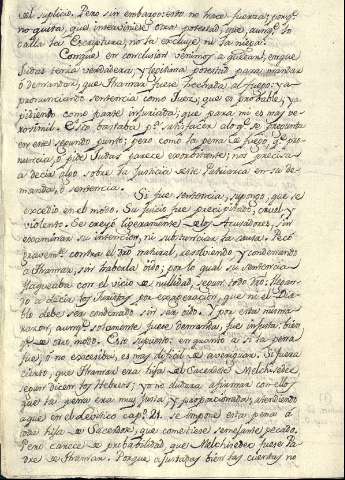 del suplicio. Pero sin embargo esto no hace fuerza, porq.e
no quita, qual interviniese otra potestad, que, aunq.e la
calla la Escriptura, no la excluye, ni la niega.
Conque en conclusion venimos a quedar, en que
Judas tenia verdadera, y legitima potestad para mandar
ô demandar, que Thamar fuese hechada al fuego: ya
pronunciando sentencia como Juez, que es probable; ya
pidiendo como parte injuriada; que para mi es mas ve-
rosimil. Esto bastaba p.a satisfacer alo q.e se pregunta
en este segundo punto; pero como la pena de fuego, q.e pro-
nuncia, ô pide Judas parece exorbitante; nos precisa
a decir algo sobre la Justicia de este Patriarca en su de-
manda, ô sentencia.
Si fue sentencia, supongo, que se
excedio en el modo. Su juicio fue precipitado, cruel, y
violento. Se creyó ligeramente de los Acusadores, sin
examinar su intencion, ni substanciar la causa. Pecó
gravem.te contra el dro natural, resolviendo y condenando
a Thamar, sin haberla oido; por lo qual su sentencia
flaqueaba con el vicio de nullidad, segun todo dro: llegan-
do a decir los Juristas por exageracion, que ni el Dia-
blo debe ser condenado sin ser oido. Y por esta misma
razon, aunq.e solamente fuese demanda, fue injusta; bien
q.e de otro modo. Esto supuesto: en quanto a si la pena
fue, ô no excesiva, es mas dificil de averiguar. Si fuera
cierto, que Thamar era hija de Sacerdote Melchisedec
segun dicen los Hebreos; yo no dudara afirmar con ellos
que tal pena era muy justa y proporcionada, atendiendo
a que en el Levitico cap.o 21. se impone esta pena â
toda hija de Sacerdote, que cometiese semejante pecado.
Pero carece de probabilidad, que Melchisedec fuese Pa-
dre de Thamar. Porque ajustadas bien las cuentas, no